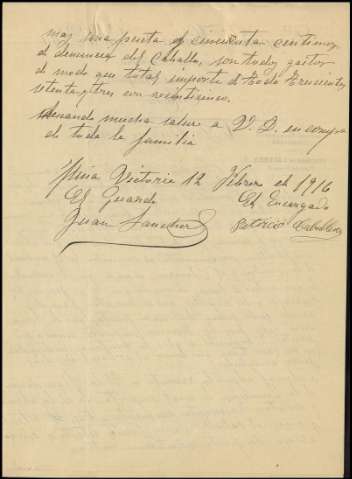 mas una peseta y cincuenta centimos
de denuncia del Caballo, son todos gastos
de modo que total importe de todo trecientos
setenta y tres con veinticinco.
deseando mucha salud a V. D. en comp
de toda la familia
Victoria 12 Febrero de 1916
El Guarda El Encargado
Juan Sanchez Patricio Caballero